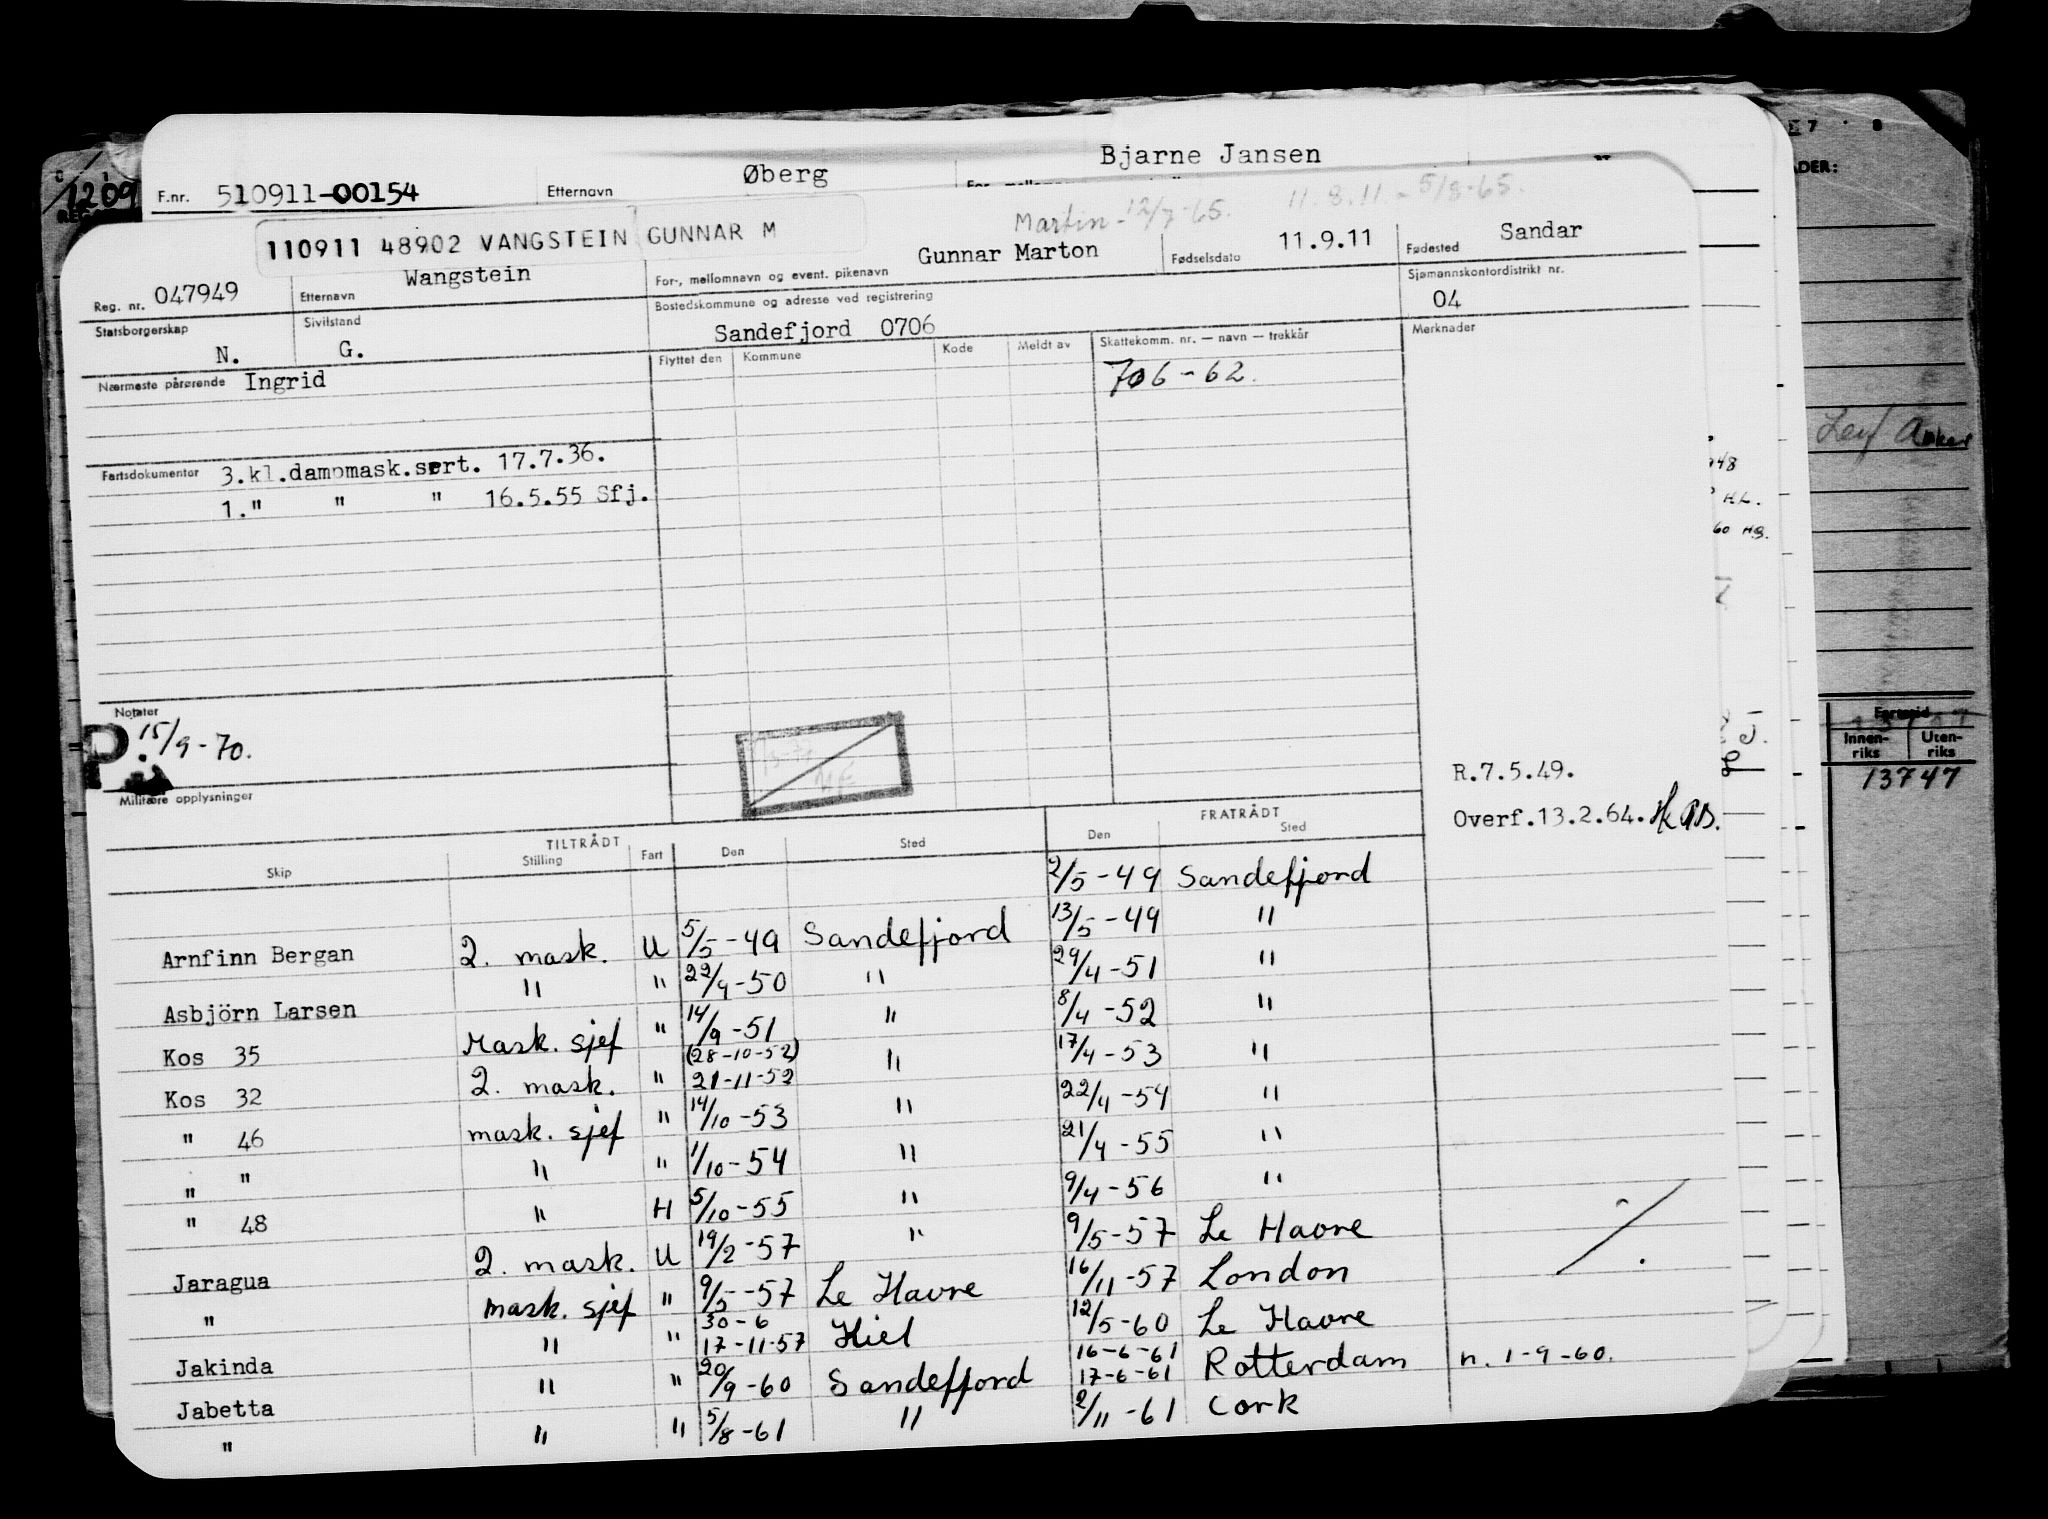 F.nr. 510911-00154 Etternavn Øberg Bjarne Jansen
1209
110911 48902 VANGSTEIN GUNNAR M
Martin - 12/7-65. 11.8.11 - 5/8-65.
Reg. nr. 047949 Etternavn Wangstein For-, mellomnavn og event. pikenavn Gunnar Marton Fødselsdato 11.9.11 Fødested Sandar
Statsborgerskap N. Sivilstand G. Bostedskommune og adresse ved registrering Sandefjord 0706 Sjømannskontordistrikt nr. 04
Nærmeste pårørende Ingrid Flyttet den Kommune Kode Meldt av Skattekomm. nr. — navn — trekkår Merknader
706-62.
Fartsdokumenter 3.kl.dampmask.sert. 17.7.36.
1." " " 16.5.55 Sfj.
Notater
P 15/9-70.
Militære opplysninger
R.7.5.49.
Overf.13.2.64.
TILTRÅDT FRATRÅDT
Skip Stilling Fart Den Sted Den Sted
2/5-49 Sandefjord
Arnfinn Bergan 2. mask. U 5/5-49 Sandefjord 13/5-49 "
Asbjörn Larsen " " 22/9-50 " 29/4-51 "
Kos 35 Mask. sjef " 14/9-51 " 8/4-52 "
Kos 32 2. mask. " (28-10-52) 21-11-52 " 17/4-53 "
" 46 mask. sjef " 14/10-53 " 22/4-54 "
" " " " 1/10-54 " 21/4-55 "
" 48 " H 5/10-55 " 9/4-56 "
Jaragua 2. mask. U 19/2-57 " 9/5-57 Le Havre
" mask. sjef " 9/5-57 Le Havre 16/11-57 London
Jakinda " " 30-6 17-11-57 Kiel 12/5-60 Le Havre
Jabetta " " 20/9-60 Sandefjord 16-6-61 17-6-61 Rotterdam n. 1-9-60.
" " " 5/8-61 " 2/11-61 Cork
Leif
Fartstid
Innen-riks Uten-riks
13747